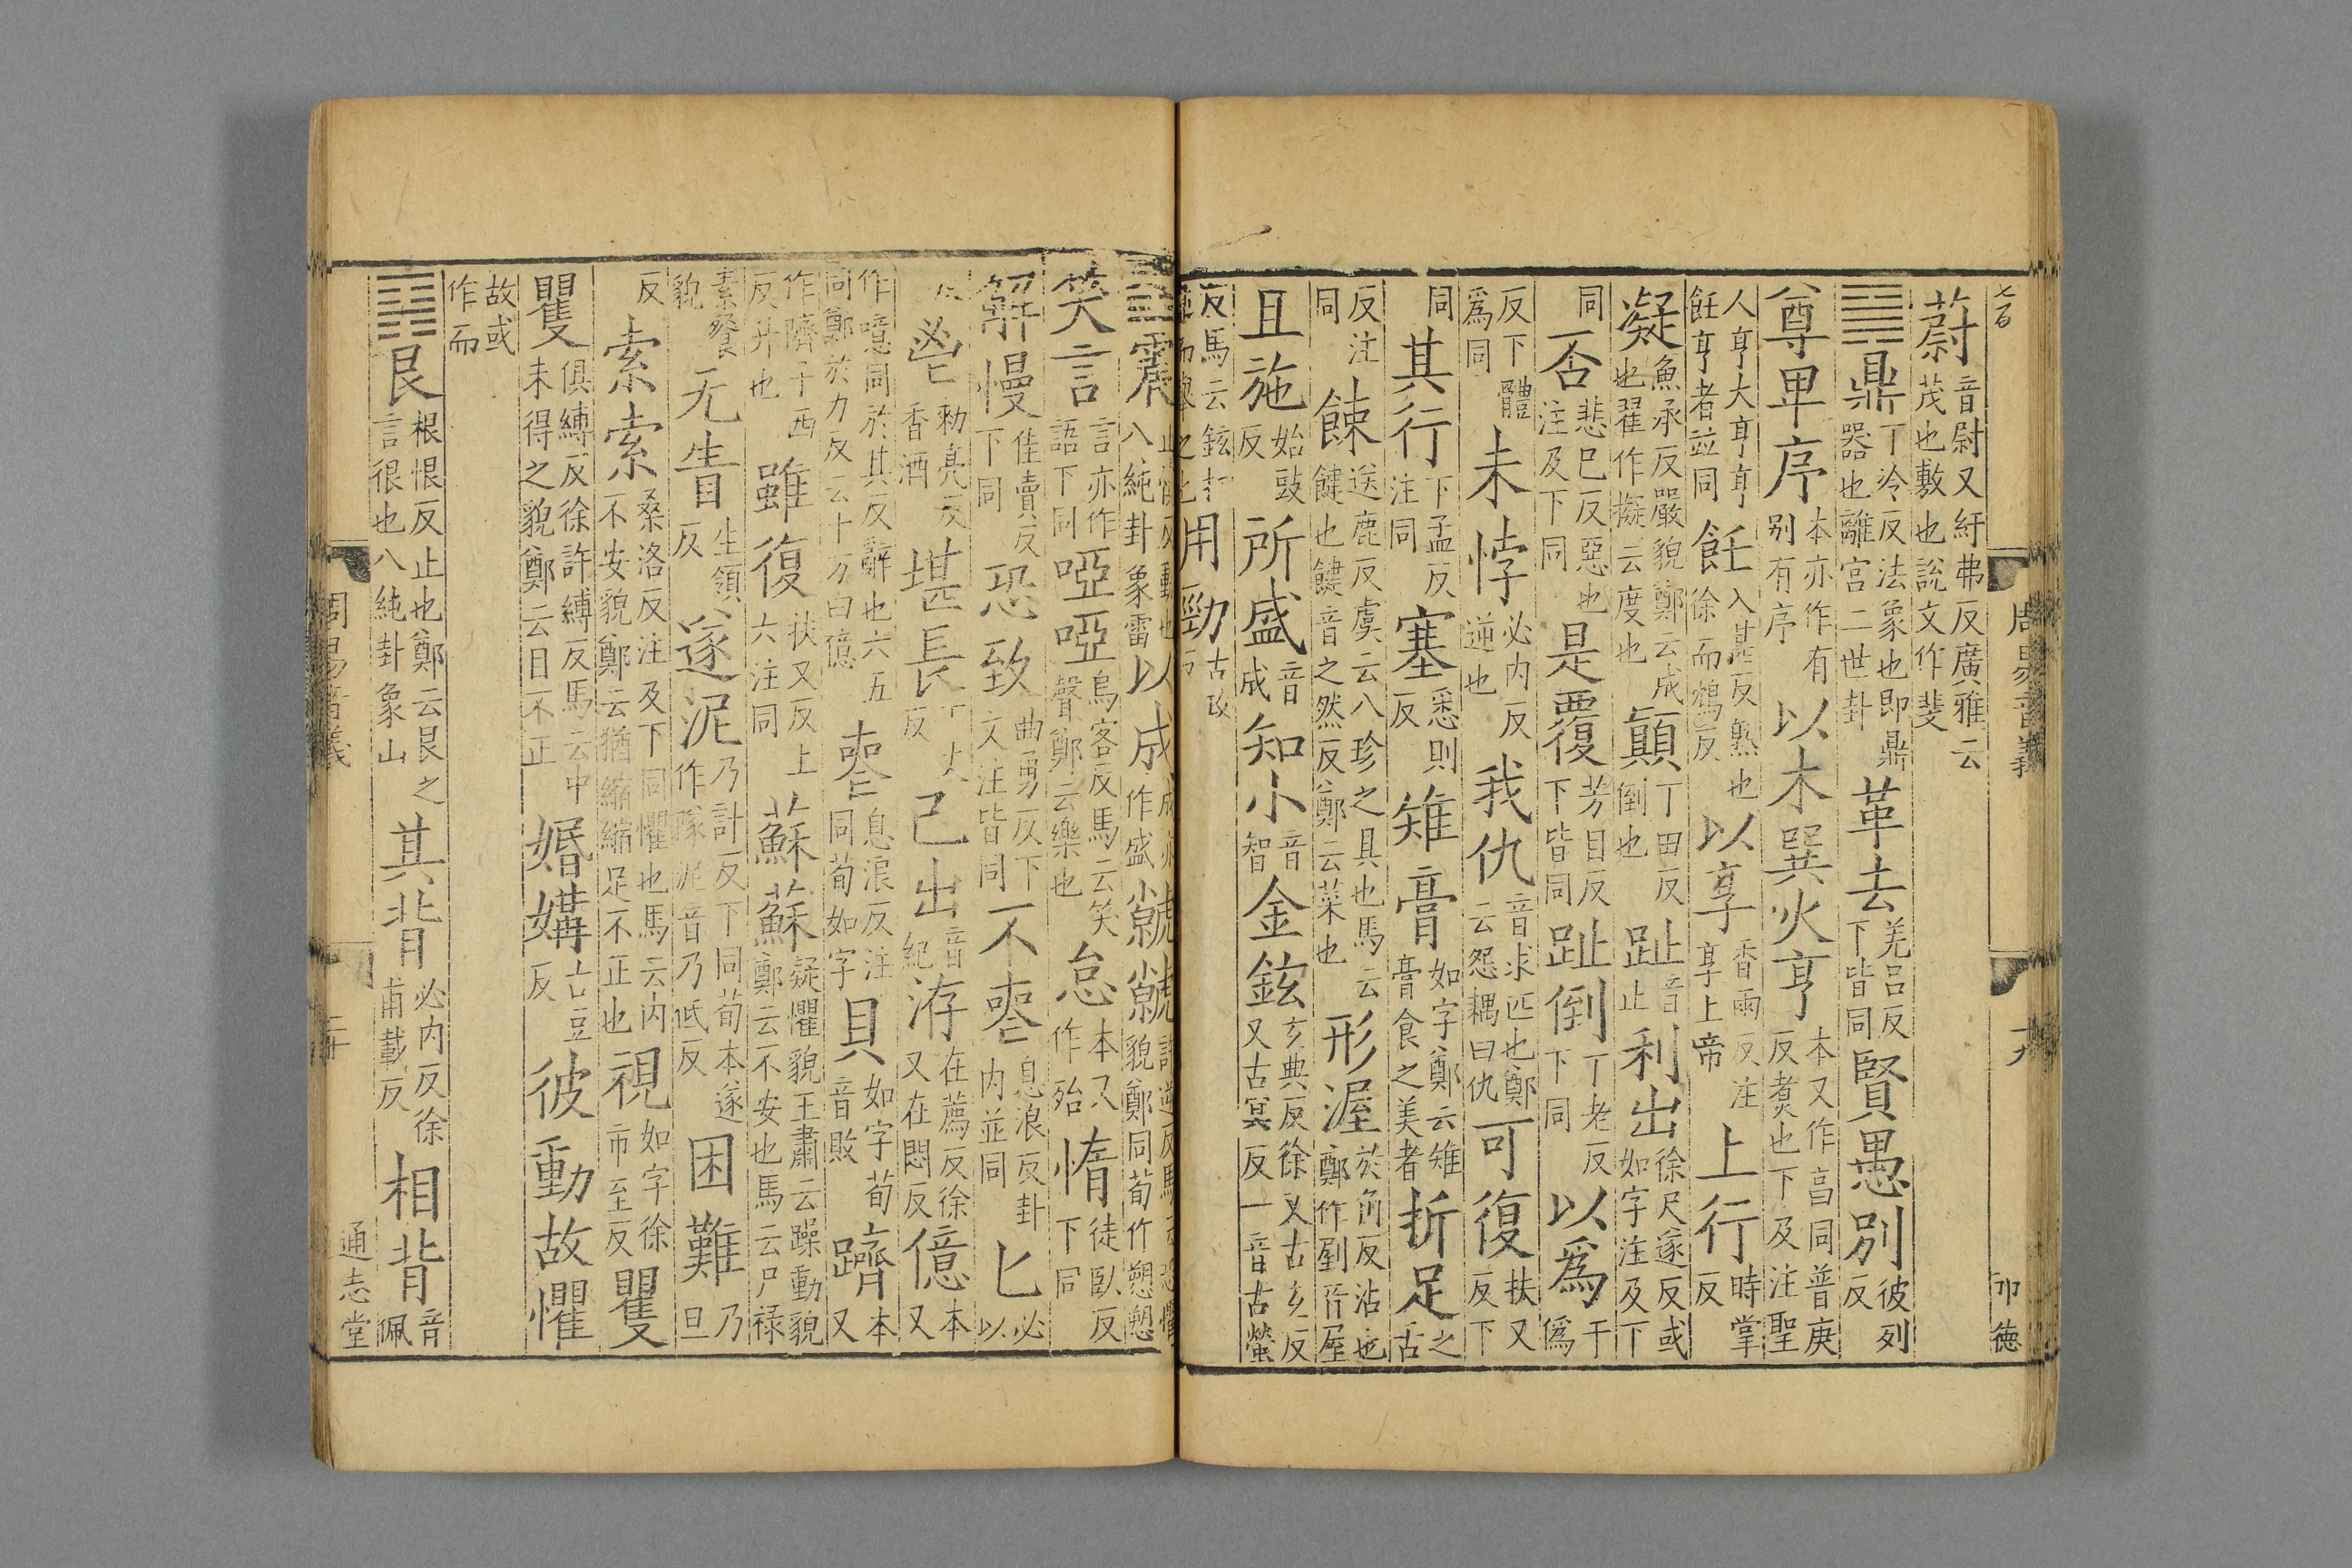 七百
蔚音尉又紆弗反廣雅云茂也數也說文作斐
鼎丁冷反法象也即鼎器也離宮二世卦革去羌呂反下皆同賢愚別彼列反
尊卑序本亦作有别有序以木巽火亨本又作亯同普庚反煑也下及注聖
人亨大亨亨飪亨者竝同飪入甚反熟也徐而鴆反以享香兩反注享上帝上行時掌反
凝魚承反嚴貌鄭云成也翟作擬云度也顚丁田反倒也趾音止利出徐尺遂反或如字注及下
同否悲巳反惡也注及下同是覆芳目反下皆同趾倒丁老反下同以爲于僞
反下爲同體未悖必内反逆也我仇音求匹也鄭云怨耦曰仇可復扶又反下
同其行下孟反注同塞悉則反雉膏如字鄭云雉膏食之美者折足之舌
反注同餗送鹿反虞云八珍之具也馬云鍵也鍵音之然反鄭云菜也形渥於角反沾也鄭作剭音屋
且施始豉反所盛音成知小音智金鉉玄典反徐又古玄反又古冥反一音古螢
反馬云鉉扛鼎而舉之也用勁古政反
震止慎反動也八純卦象雷以成作盛虩虩許逆反馬云恐懼貌鄭同荀作愬愬
笑言言亦作語下同啞啞烏客反馬云笑聲鄭云樂也怠本又作殆惰徒臥反下同
解慢佳賣反下同恐致曲勇反下文注皆同不喪息浪反卦内並同匕必以
反鬯勑亮反香酒堪長丁丈反己出音紀洊在薦反徐又在悶反億本又
作噫同於其反辭也六五同鄭於力反云十万曰億喪息浪反注同荀如字貝如字荀音敗躋本又
作隮子西反升也雖復扶又反上六注同蘇蘇疑懼貌王肅云躁動貌鄭云不安也馬云尸禄
素餐貌无眚生領反遂泥乃計反下同荀本遂作隊泥音乃低反困難乃旦
反索索桑洛反注及下同懼也馬云内不安貌鄭云猶縮縮足不正也視如字徐市至反矍
矍俱縛反徐許縛反馬云中未得之貌鄭云目不正婚媾古豆反彼動故懼
故或作而
艮根恨反止也鄭云艮之言很也八純卦象山其背必内反徐甫載反相背音佩
周易音義
十九
卭德
周易音義
二十
通志堂